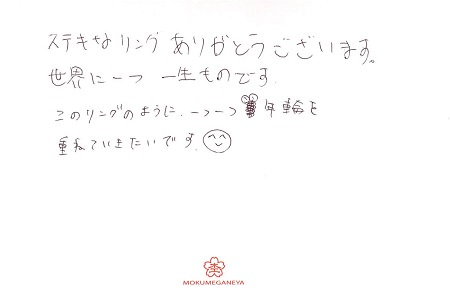 ステキなリング ありがとうございます。
世界に一つ 一生ものです
このリングのように、一つ一つ 年輪を
重ねていきたいです。
MOKUMEGANEYA